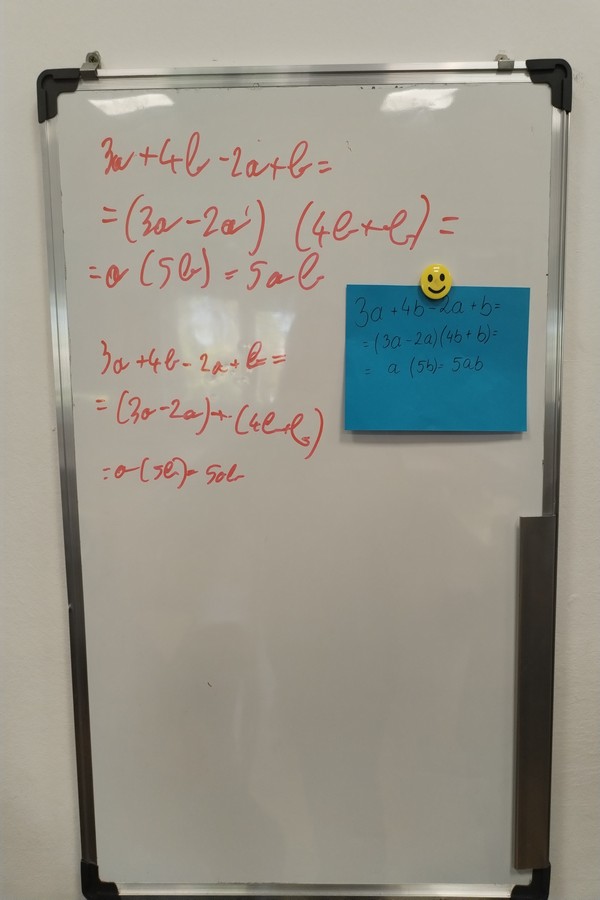 3a+4b-2a+b=
=(3a-2a) (4b+b)=
=a (5b) = 5ab
3a+4b-2a+b=
=(3a-2a)+(4b+b)
=a(5b)=5ab
3a+4b-2a+b=
=(3a-2a)(4b+b)=
= a (5b)= 5ab